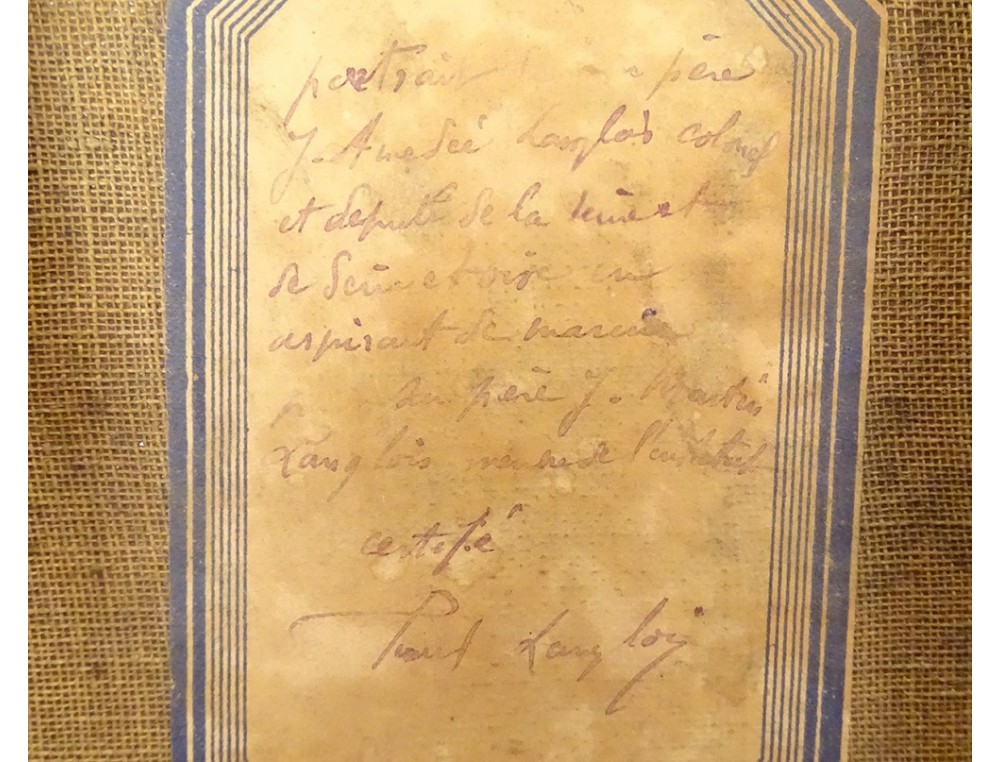 portrait de mon père
J. Amédée Langlois colonel
et député de la Seine et
de Seine et oise en
aspirant de marine
son père J. Martin
Langlois membre de l'institut
certifié
Paul Langlois